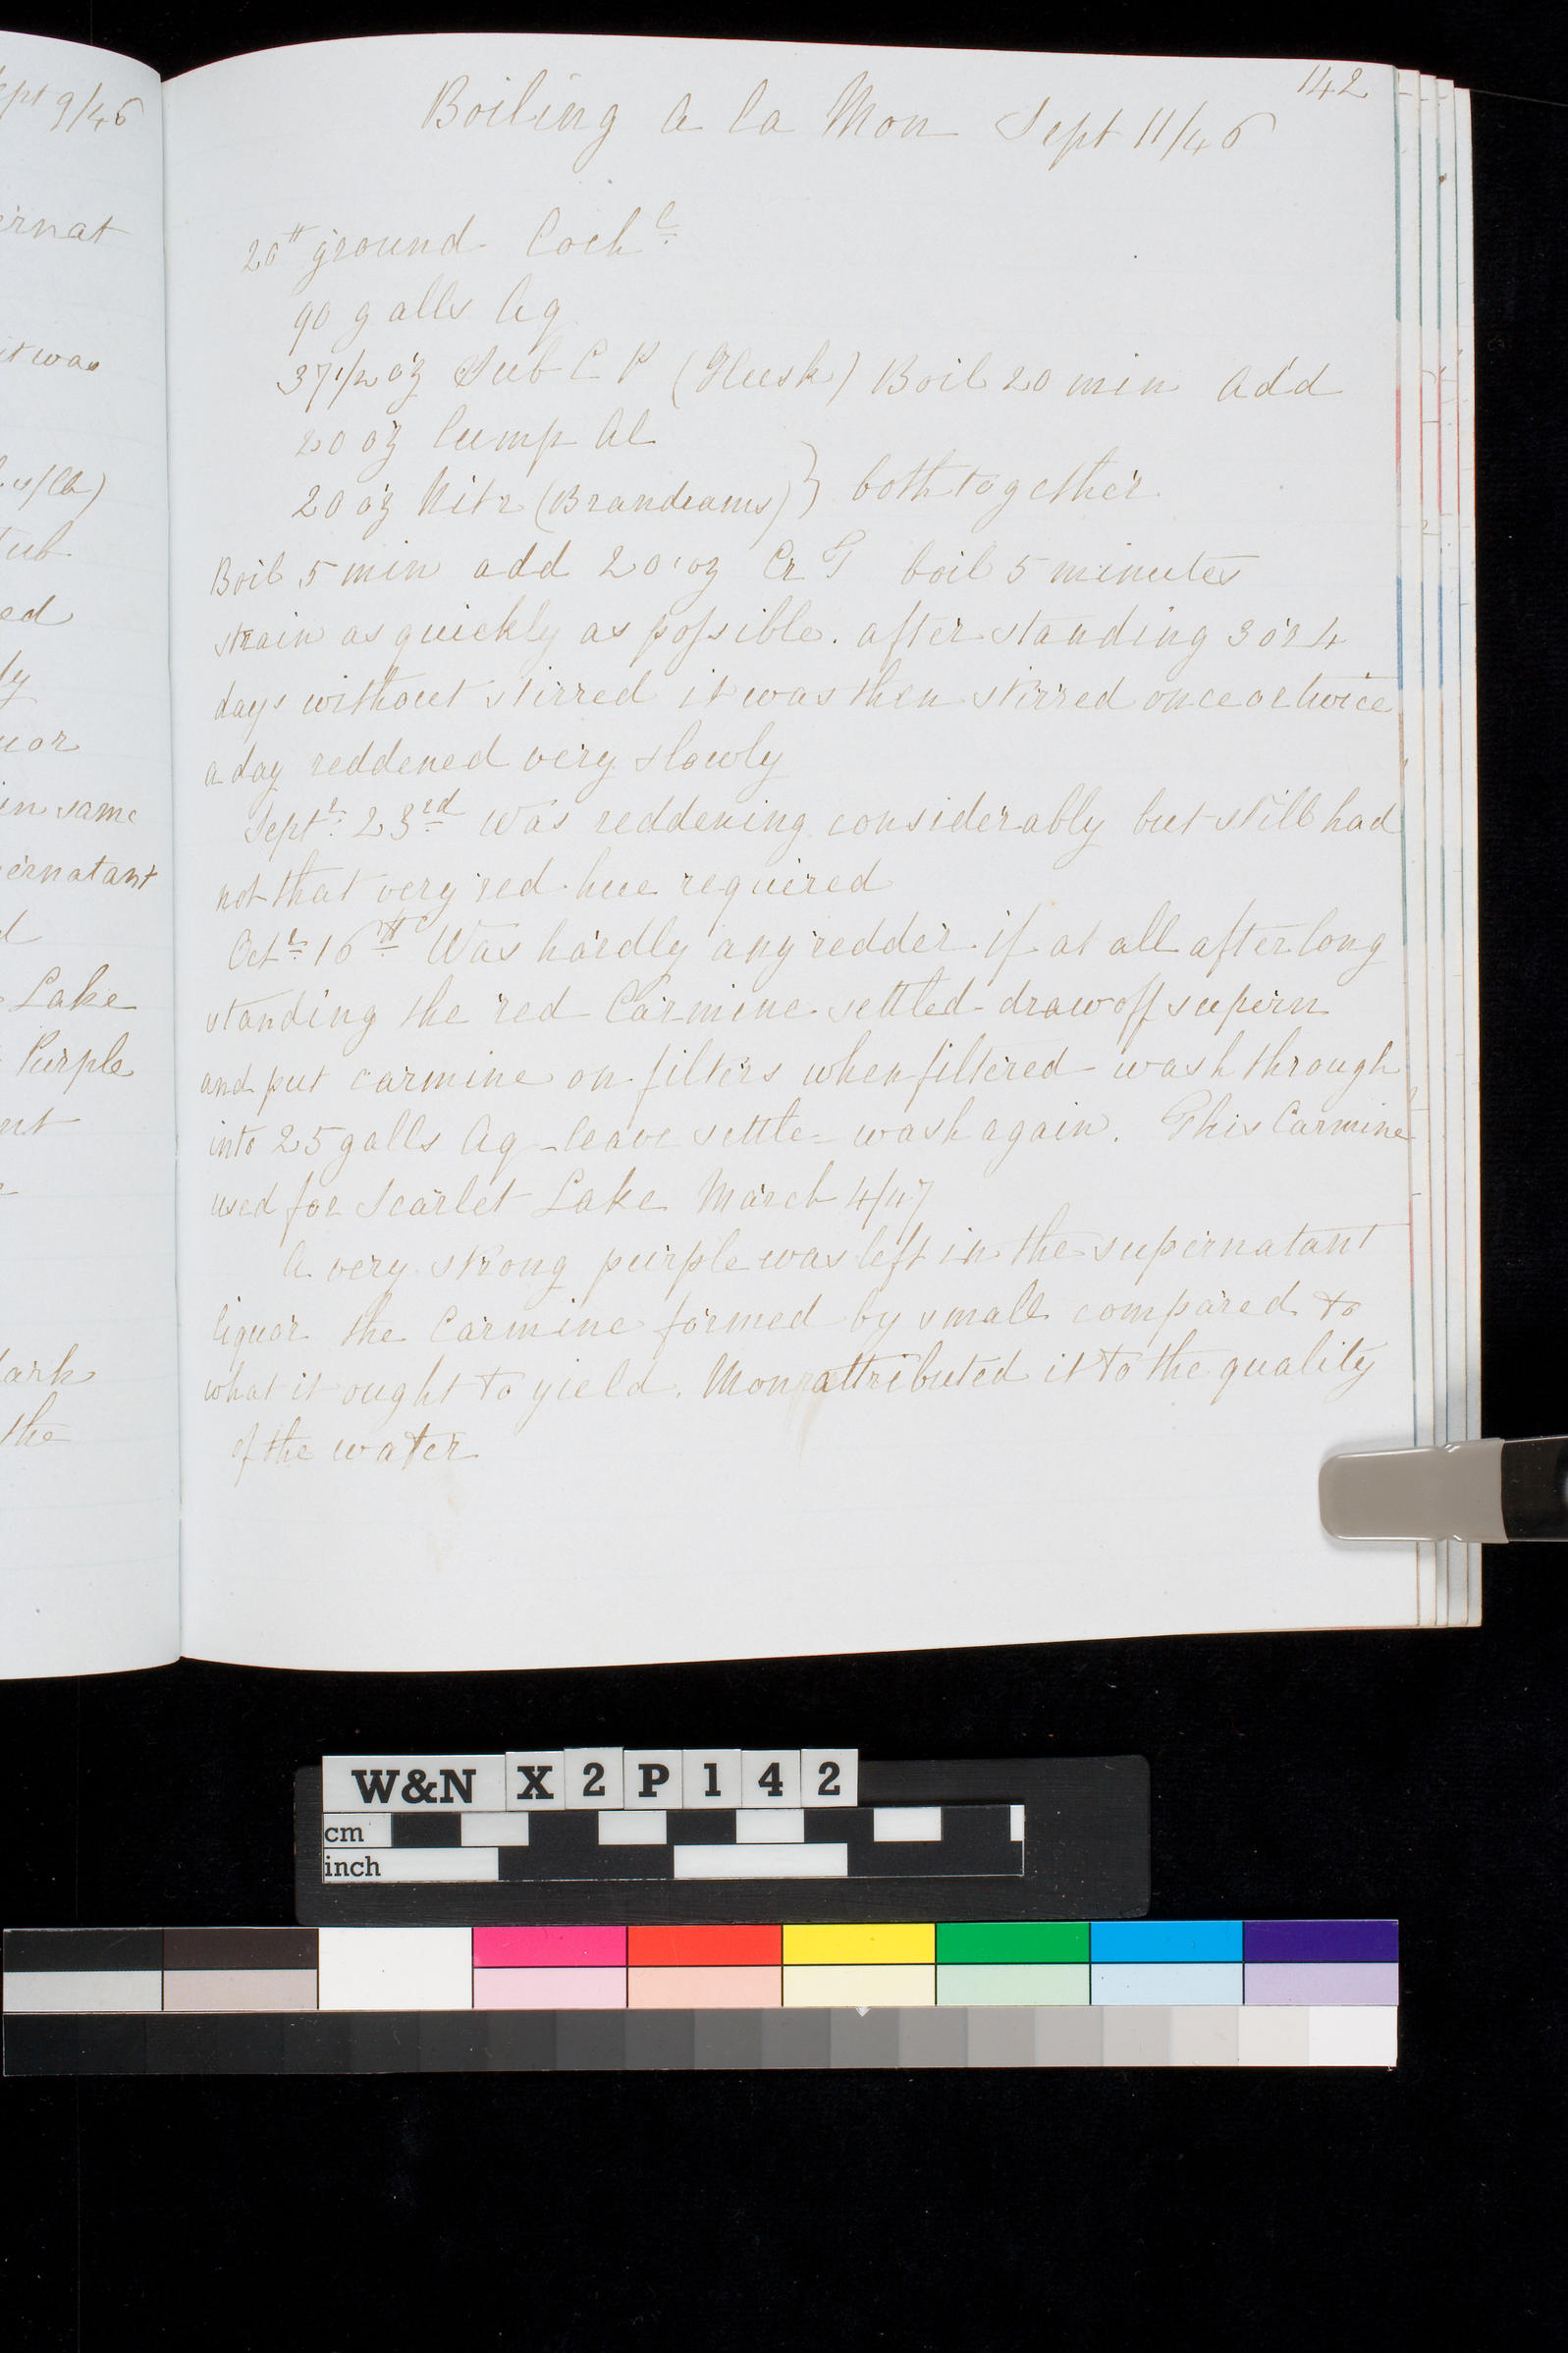 ept 9/46
ernat
it was
Tub
ed
ly
uor
in same
ernatant
d
Lake
Purple
nt
ark
the
142
Boiling a la Mon Sept 11/46
20# ground Coch l
90 galls Aq
37 1/2 oz Sub C P (Husk) Boil 20 min add
20 oz lump Al
20 oz Nitr (Brandrams) } both together
Boil 5 min add 20 oz Cr T boil 5 minutes
strain as quickly as possible. after standing 3 or 4
days without stirred it was then stirred once or twice
a day reddened very slowly
Septr. 23rd Was reddening considerably but still had
not that very red hue required
Octr. 16th Was hardly any redder if at all after long
standing the red Carmine settled - draw off supern
and put carmine on filters when filtered - wash through
into 25 galls Aq - leave settle - wash again. This Carmine
used for Scarlet Lake March 4/47
A very strong purple was left in the supernatant
liquor the Carmine formed by small compared to
what it ought to yield. Mon attributed it to the quality
of the water
W&N X 2 P 1 4 2
cm
inch